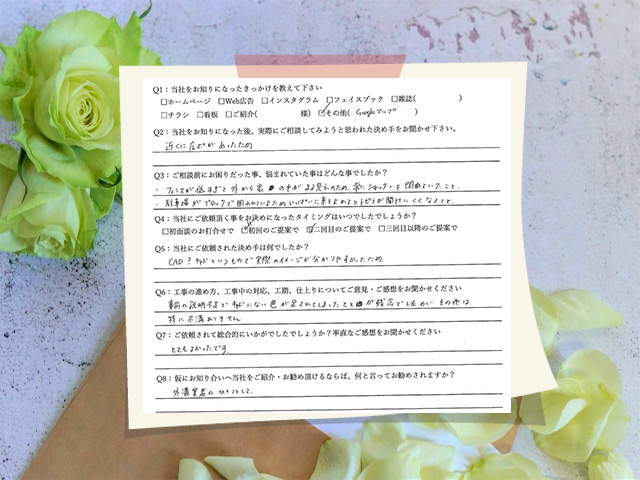 Q1：当社をお知りになったきっかけを教えて下さい
□ホームページ □Web広告 □インスタグラム □フェイスブック □雑誌( )
□チラシ □看板 □ご紹介( 様) ☑その他( Googleマップ )
Q2：当社をお知りになった後、実際にご相談してみようと思われた決め手をお聞かせ下さい。
近くに店があったため
Q3：ご相談前にお困りだった事、悩まれていた事はどんな事でしたか？
・フェンスが低すぎて外から家の中がまる見えのため、常にシャッターを閉めていたこと。
・駐車場がブロックで囲われているため、いっぱいに車をとめるとトビラが開けにくくなること。
Q4：当社にご依頼頂く事をお決めになったタイミングはいつでしたでしょうか？
□初面談のお打合せで □初回のご提案で ☑二回目のご提案で □三回目以降のご提案で
Q5：当社にご依頼された決め手は何でしたか？
CAD？というもので実際のイメージが分かりやすかったため
Q6：工事の進め方、工事中の対応、工期、仕上りについてご意見・ご感想をお聞かせください
事前の説明不足で にない色が されてしまったことが残念でしたが、その他は
特に不満ありません
Q7：ご依頼されて総合的にいかがでしたでしょうか？率直なご感想をお聞かせください
とてもよかったです。
Q8：仮にお知り合いへ当社をご紹介・お勧め頂けるならば、何と言ってお勧めされますか？
外溝業者のひとつとして。